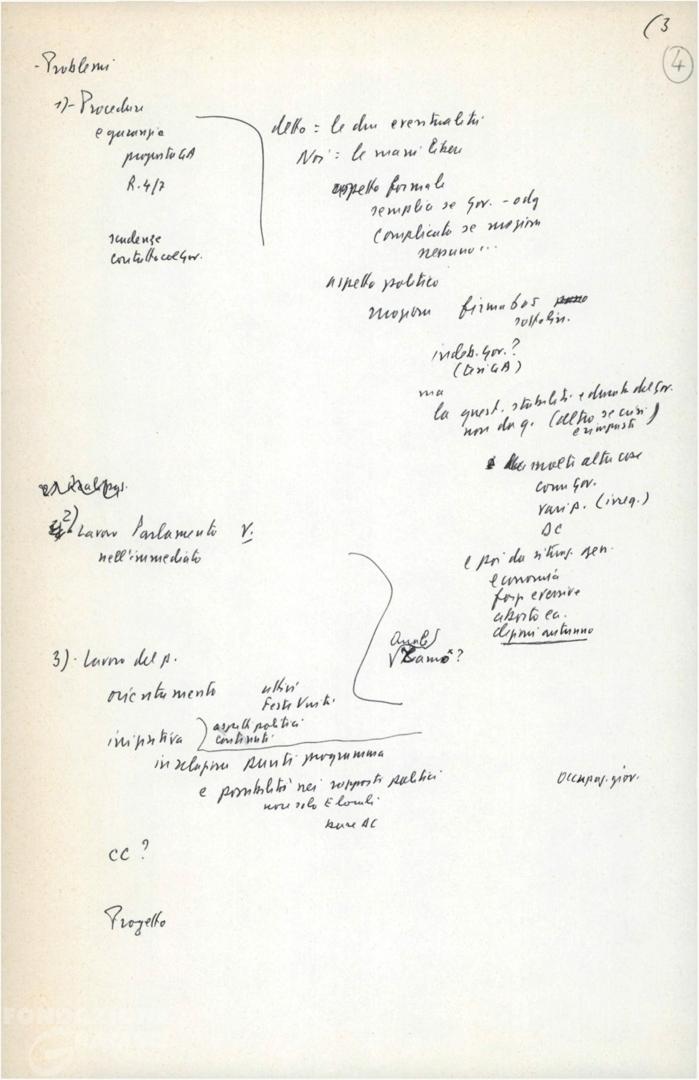 (3
4
- Problemi
1) - Procedure
e garanzie
proposta GA
R. 4/7
scadenze
contatto col Gov.
detto = le due eventualità
Noi = le mani libere
aspetto formale
semplice se Gov. - odg
complicato se mozione
nessuno...
aspetto politico
mozione firma 6 os
sottolin.
indeb. Gov.?
(tesi GA)
ma
la quest. stabilità e durata del Gov.
non da q. (altro se crisi
e rimpasti)
molti altre cose
com Gov.
vari p. (irreg.)
DC
e poi da situaz. gen.
economia
forze eversive
aborto ec.
2) Lavoro Parlamento V.
nell'immediato
3) - Lavoro del p.
orientamento attivi
Feste Unità
iniziativa aspetti politici
contenuti
in relazione punti programma
e possibilità nei rapporti politici
non solo E locali
base DC
Occupaz. giov.
CC?
Progetto